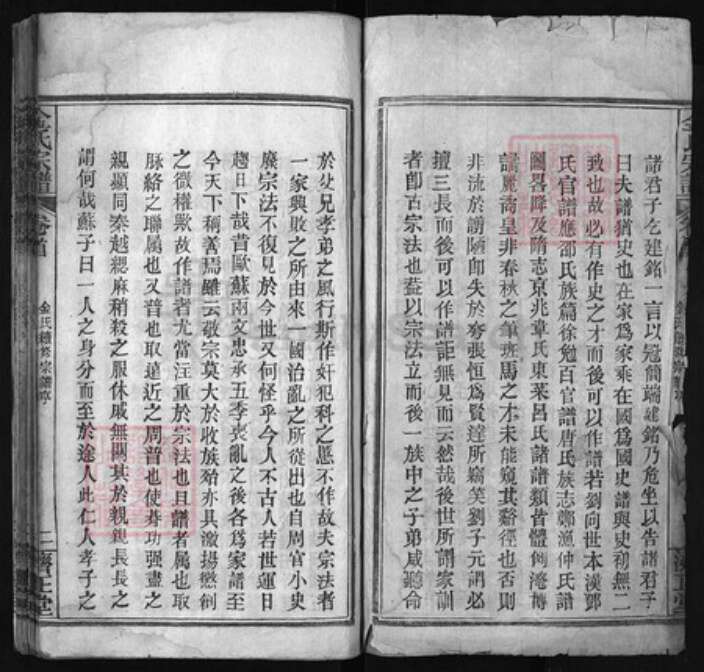 諸君子乞建銘一言以冠簡端建銘乃危坐以告諸君子
曰夫譜猶史也在家爲家乘在國爲國史譜與史初無二
致也故必有作史之才而後可以作譜若劉向世本漢鄧
氏官譜應邵氏族篇徐勉百官譜唐氏族志鄭漁仲氏譜
圖畧降及隋志京兆韋氏東萊呂氏諸譜類皆體例淹博
喬皇非春秋之筆班馬之才未能窺其谿徑也否則
非流於謗陋卽失於夸張恒爲賢達所竊笑劉子元謂必
擅三長而後可以作譜詎無見而云然哉後世所謂家訓
者卽古宗法也蓋以宗法立而後一族中之子弟咸聽命
於父兄孝弟之風行斯作奸犯科之慝不作故夫宗法者
一家興敗之所由來一國治亂之所從出也自周官小史
廢宗法不復見於今世又何怪乎今人不古人若世運日
趨日下哉昔歐蘇兩文忠承五季喪亂之後各爲家譜至
今天下稱善焉雖云敬宗莫大於收族殆亦具激揚懲創
之微權歟故作譜者尤當注重於宗法也且譜者属也取
脉絡之聯屬也又普也取遠近之周普也使功强畫之
親顯同秦越緦麻稍殺之服休戚無關其於親親長長之
謂何哉蘇子曰一人之身分而至於途人此仁人孝子之
金氏宗譜
卷首
金氏續修宗譜序
二
濟正堂